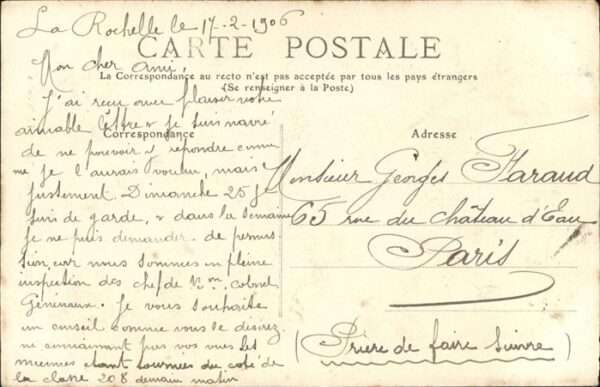 La Rochelle le 17-2-1906
CARTE POSTALE
Mon cher ami,
La Correspondance au recto n'est pas acceptée par tous les pays étrangers
(Se renseigner à la Poste)
J'ai reçu avec plaisir votre
aimable lettre & je suis navré
Correspondance
de ne pouvoir y répondre comme
je l'aurais voulu, mais
justement Dimanche 25 je
suis de garde, & dans la semaine
je ne puis demander de permis-
sion, car nous sommes en pleine
inspection des chefs de Bon, colonel
Généraux. Je vous souhaite
un conseil comme vous le désirez
ne connaissant pas vos vues les
miennes étant tournées du coté de
la classe 208 demain matin
Adresse
Monsieur Georges Faraud
65 rue du Château d'Eau
Paris
(Prière de faire suivre)